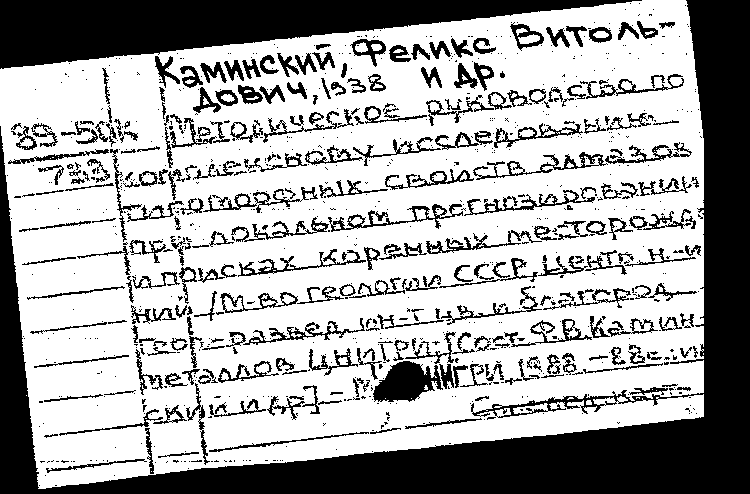 Каминский, Феликс Витоль-
дович, 1938 и др.
89-50к Методическое руководство по
783 комплексному исследованию
типоморфных свойств алмазов
при локальном прогнозировании
и поисках коренных месторожде
ний /М-во геологии СССР, Центр. н.-и
геол-развед. ин-т цв. и благород
металлов ЦНИГРИ; [Сост. Ф.В.Камин-
ский и др] - НИГРИ, 1988. -88с.:ил
См. след. карт.